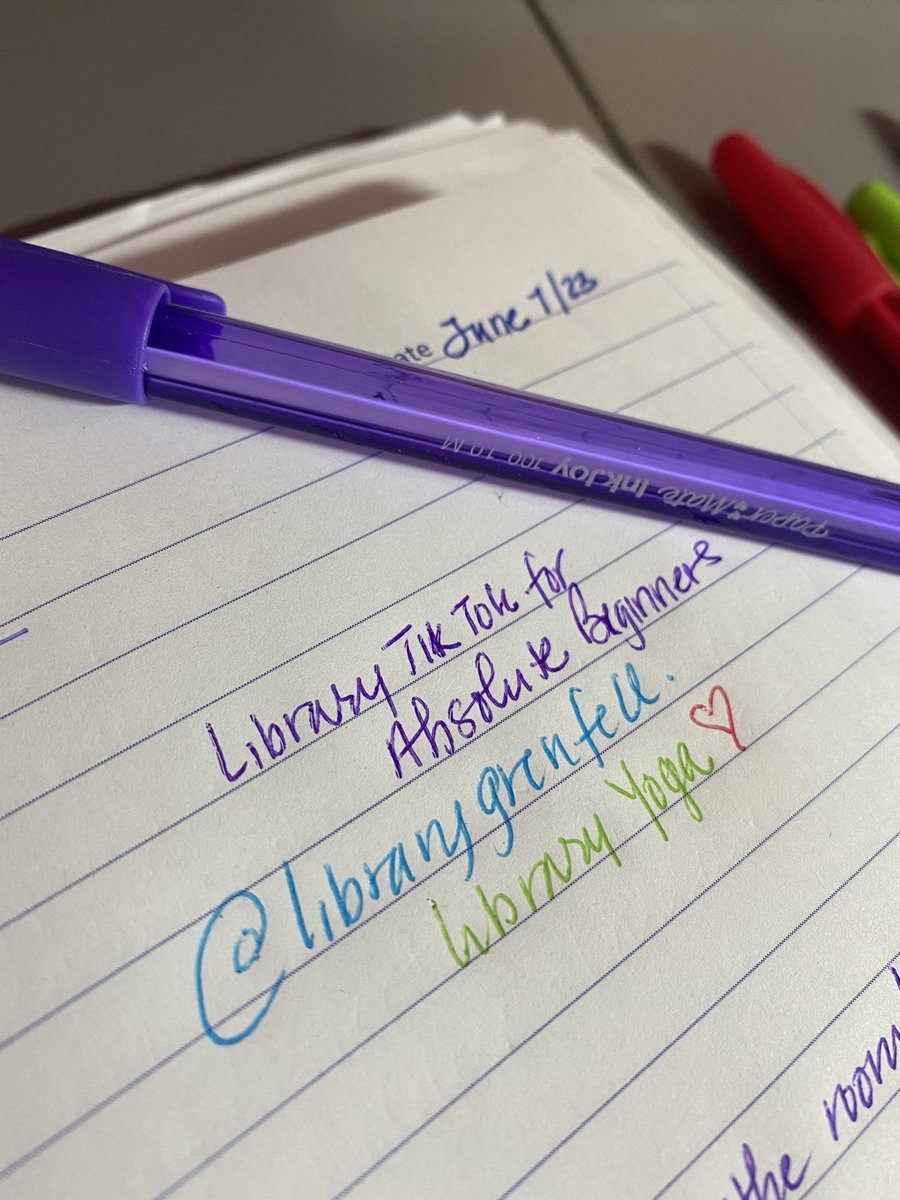 ate June 1/23
Paper Mate InkJoy 100 1.0 M
Library TikTok for
Absolute Beginners
@librarygrenfell.
Library Yoga
the room